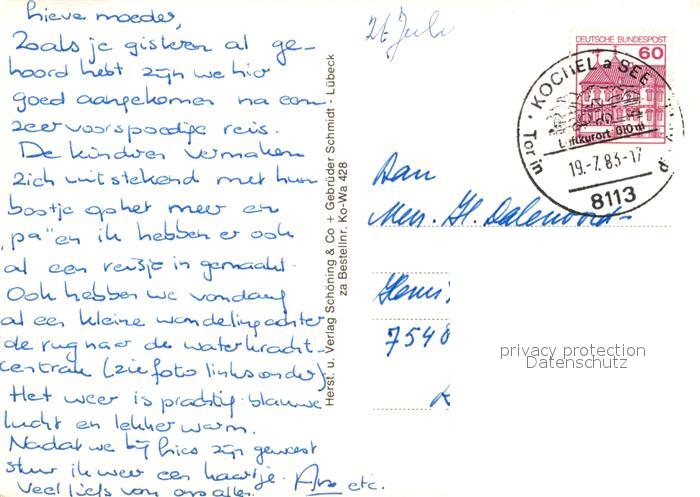 Lieve moeder,
Zoals je gisteren al ge-
hoord hebt zijn we hier
goed aangekomen na een
zeer voorspoedige reis.
De kinderen vermaken
zich uitstekend met hun
bootje op het meer en
"pa" en ik hebben er ook
al een reisje in gemaakt.
Ook hebben we vandaag
al een kleine wandeling achter
de rug naar de waterkracht-
centrale (zie foto linksonder).
Het weer is prachtig blauwe
lucht en lekker warm.
Nadat we bij zijn geweest
stuur ik weer een kaartje.
Veel liefs van ons allen. etc.
Herst. u. Verlag Schöning & Co + Gebrüder Schmidt - Lübeck
za Bestellnr. Ko-Wa 428
26 Juli
DEUTSCHE BUNDESPOST
60
KOCHEL a SEE
Luftkurort 610 m
Torin
19.-7.83-17
8113
Aan
Mev. H.
7548
privacy protection
Datenschutz